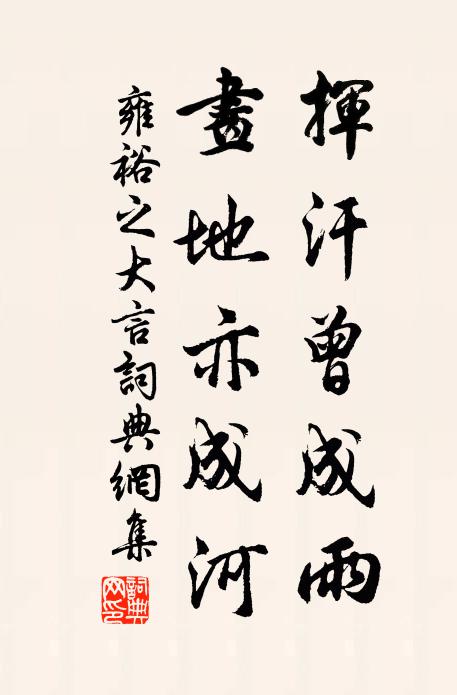 揮汗曾成雨
畫地亦成河
雍裕之大言詞典網集
詞典网印